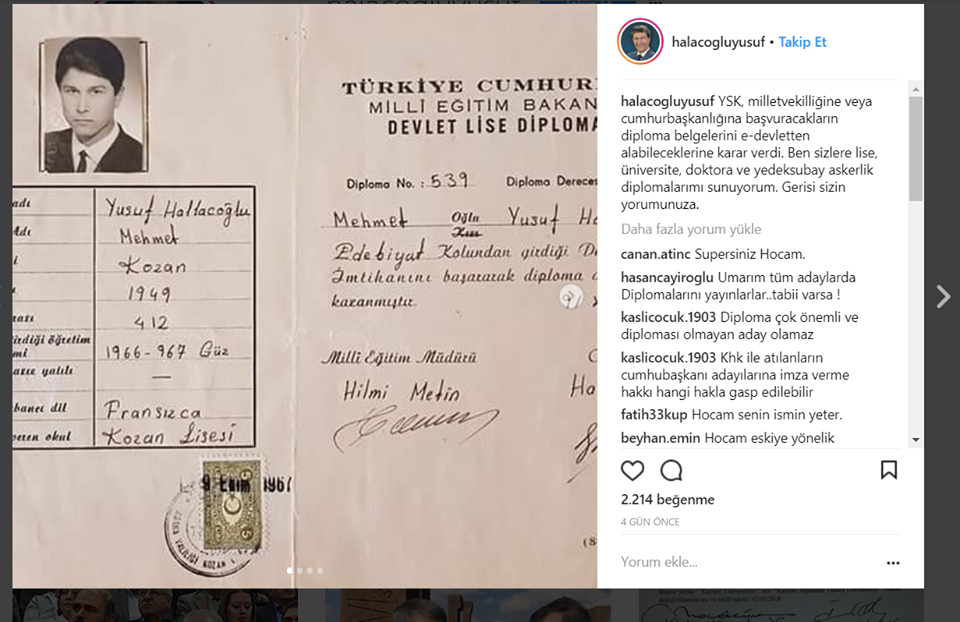 TÜRKİYE CUMHUR
MİLLÎ EĞİTİM BAKAN
DEVLET LİSE DİPLOMA
Diploma No. : 539 Diploma Dereces
Mehmet Oğlu Yusuf Ha
Kızı
Edebiyat Kolundan girdiği De
İmtihanını başararak diploma
kazanmıştır.
Millî Eğitim Müdürü
Hilmi Metin
Ha
adı Yusuf Hallacoğlu
Adı Mehmet
i Kozan
1949
rası 412
irdiği öğretim
mi 1966-967 Güz
arsız yatılı —
banci dil Fransızca
veren okul Kozan Lisesi
9 Ekim 1967
5 5
halacogluyusuf • Takip Et
halacogluyusuf YSK, milletvekilliğine veya
cumhurbaşkanlığına başvuracakların
diploma belgelerini e-devletten
alabileceklerine karar verdi. Ben sizlere lise,
üniversite, doktora ve yedeksubay askerlik
diplomalarımı sunuyorum. Gerisi sizin
yorumunuza.
Daha fazla yorum yükle
canan.atinc Supersiniz Hocam.
hasancayiroglu Umarım tüm adaylarda
Diplomalarını yayınlarlar..tabii varsa !
kaslicocuk.1903 Diploma çok önemli ve
diploması olmayan aday olamaz
kaslicocuk.1903 Khk ile atılanların
cumhubaşkanı adayılarına imza verme
hakkı hangi hakla gasp edilebilir
fatih33kup Hocam senin ismin yeter.
beyhan.emin Hocam eskiye yönelik
2.214 beğenme
4 GÜN ÖNCE
Yorum ekle...